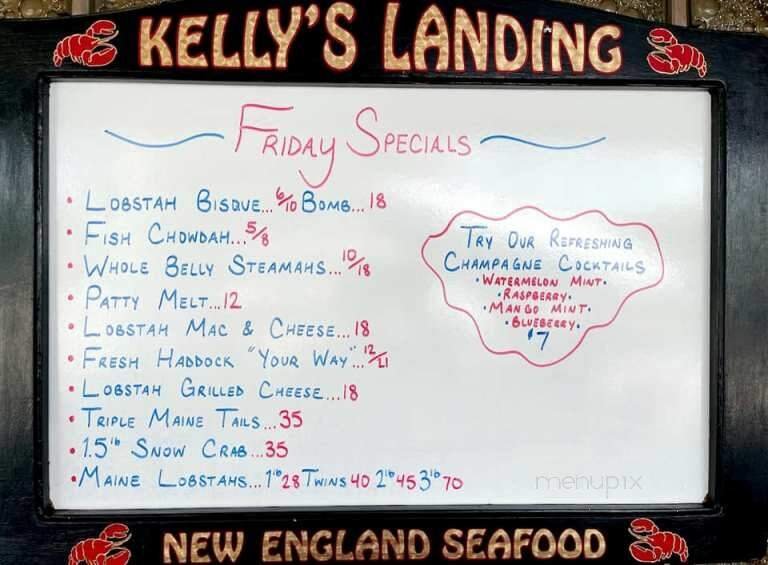 KELLY'S LANDING
FRIDAY SPECIALS
• LOBSTAH BISQUE... 6/10 BOMB... 18
• FISH CHOWDAH... 5/8
• WHOLE BELLY STEAMAHS... 10/18
• PATTY MELT... 12
• LOBSTAH MAC & CHEESE... 18
• FRESH HADDOCK "YOUR WAY"... 12/21
• LOBSTAH GRILLED CHEESE... 18
• TRIPLE MAINE TAILS... 35
• 1.5lb SNOW CRAB... 35
• MAINE LOBSTAHS... 1lb 28 TWINS 40 2lb 45 3lb 70
TRY OUR REFRESHING
CHAMPAGNE COCKTAILS
• WATERMELON MINT •
• RASPBERRY •
• MANGO MINT •
• BLUEBERRY •
$7
menupix
NEW ENGLAND SEAFOOD